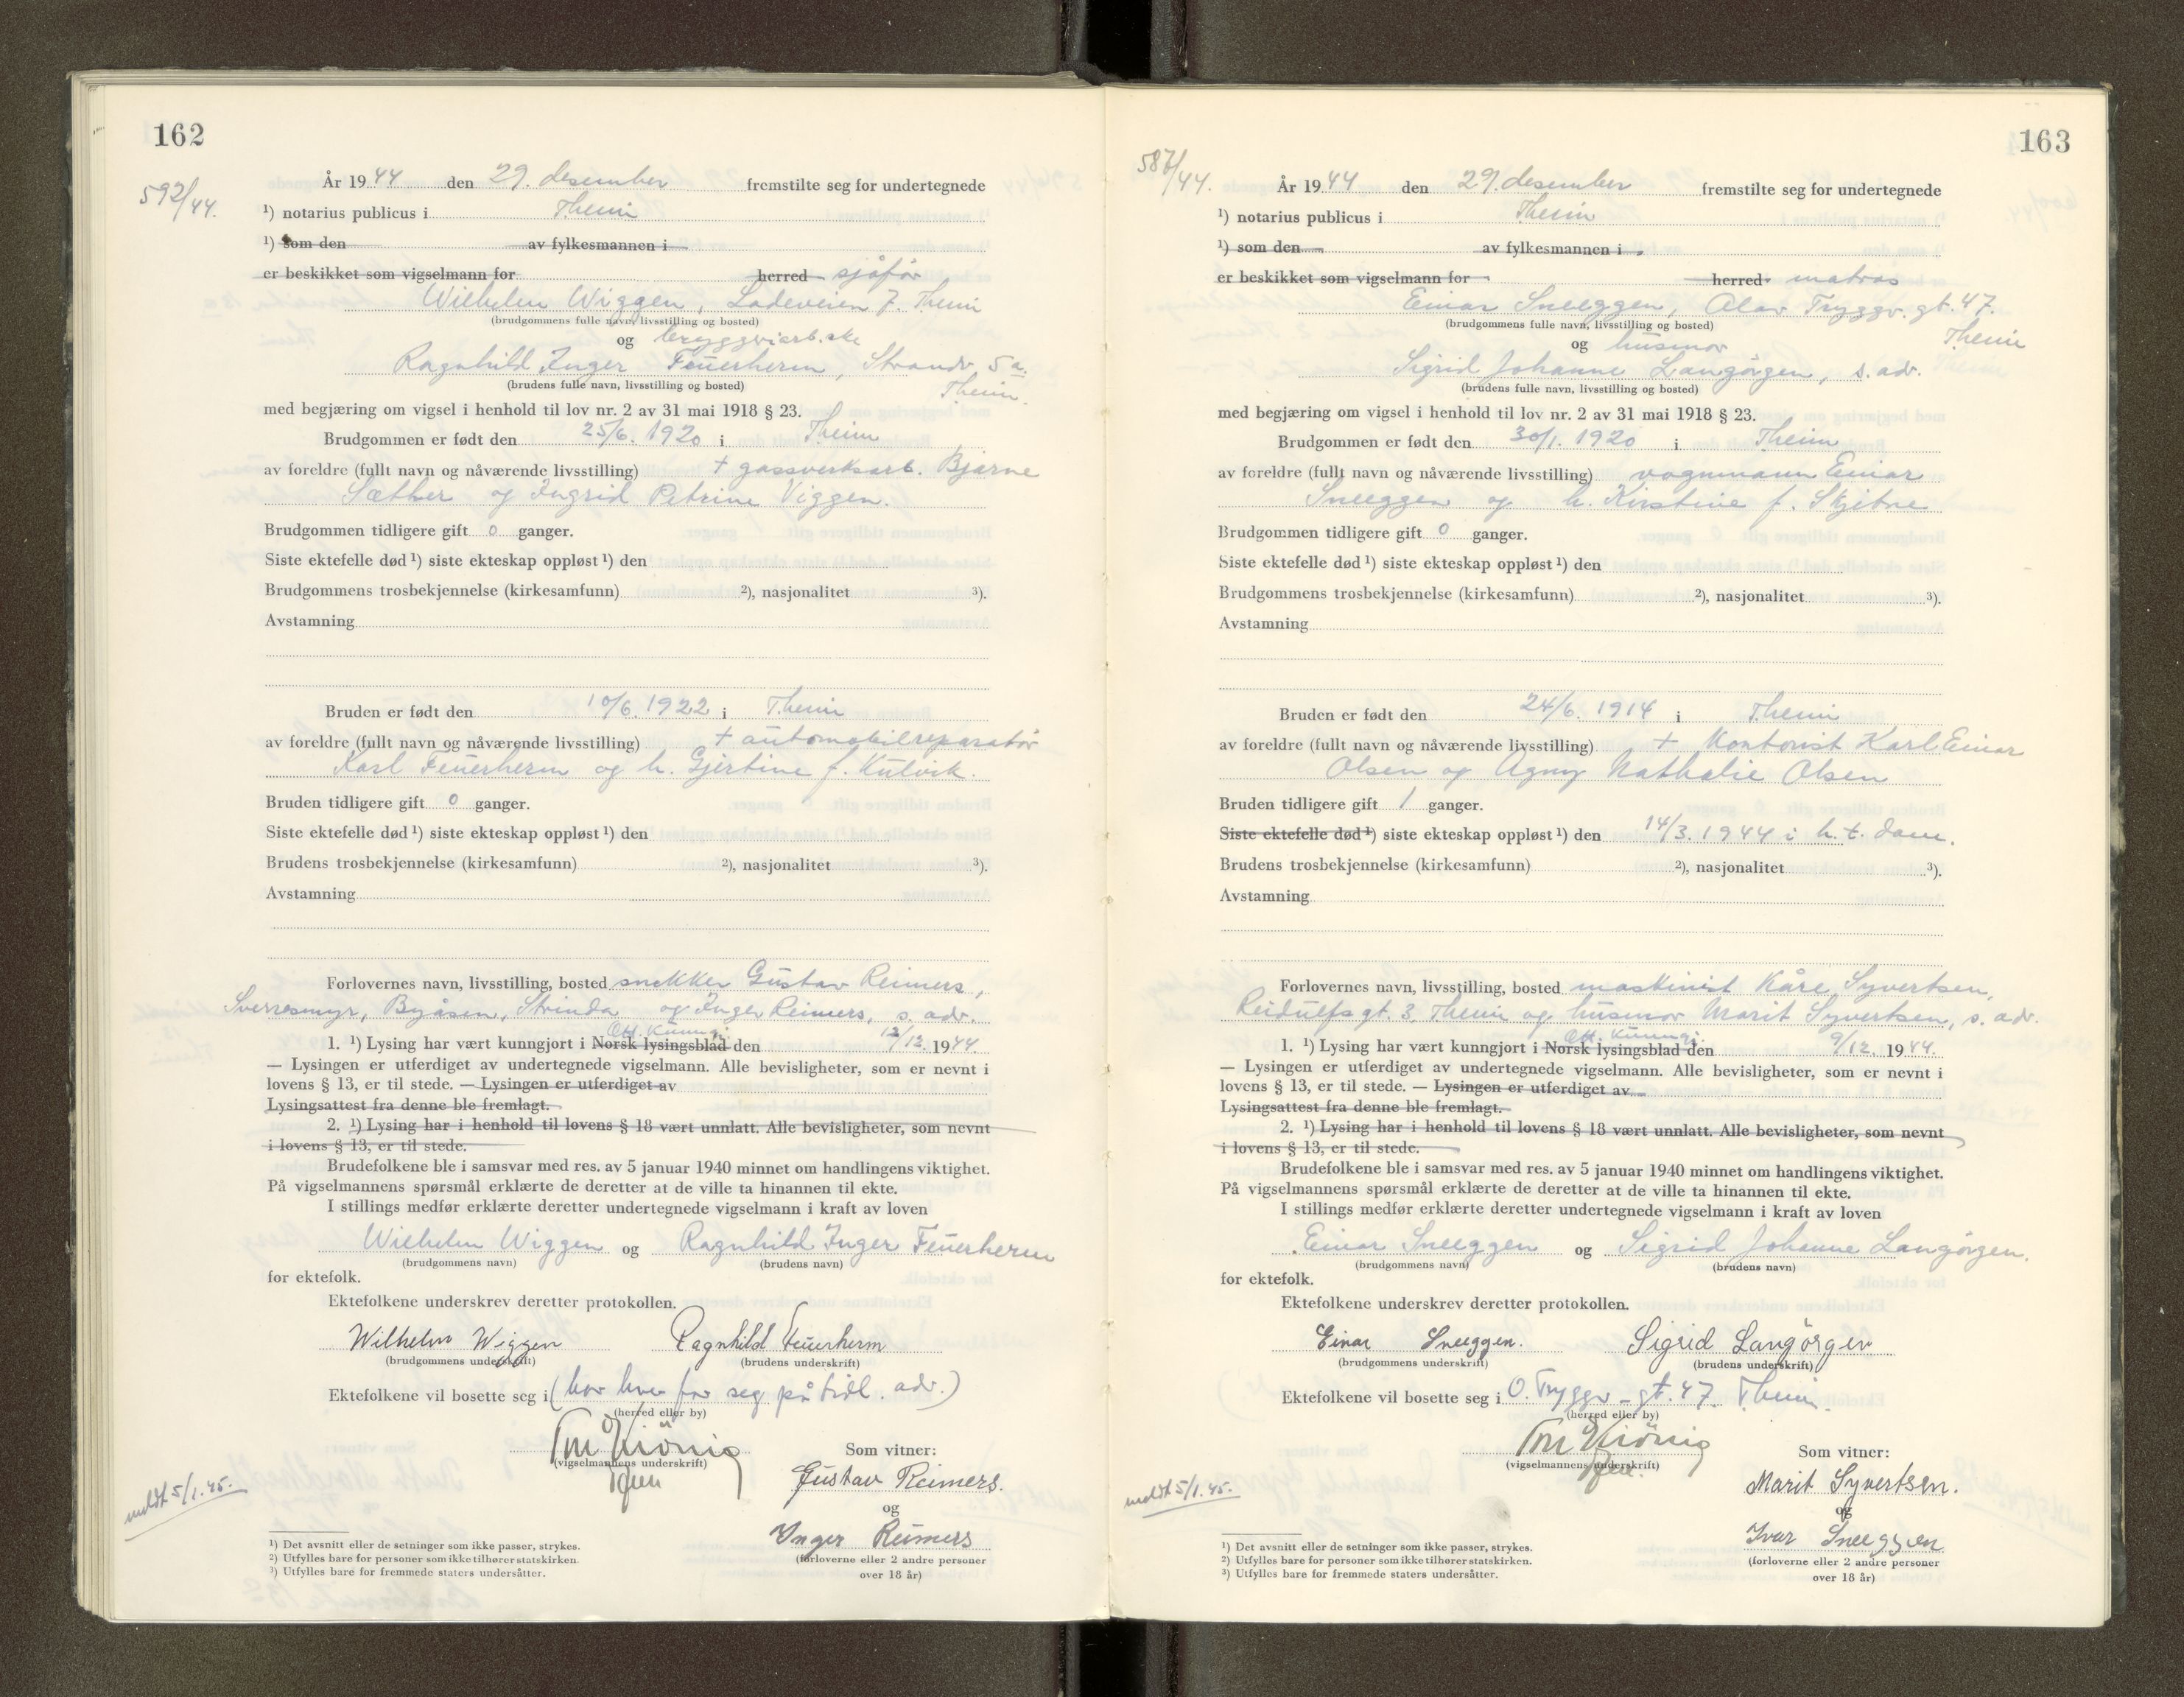 162
592/44.
År 1944 den 29. desember fremstilte seg for undertegnede
¹) notarius publicus i Theim
¹) som den av fylkesmannen i
er beskikket som vigselmann for herred sjåfør
Wilhelm Wiggen, Ladeveien 7. Theim
(brudgommens fulle navn, livsstilling og bosted)
og bryggeriarb.ske
Ragnhild Inger Feuerherm, Strandv. 5 a.
(brudens fulle navn, livsstilling og bosted) Theim.
med begjæring om vigsel i henhold til lov nr. 2 av 31 mai 1918 § 23.
Brudgommen er født den 25/6. 1920 i Theim
av foreldre (fullt navn og nåværende livsstilling) + gassverksarb. Bjarne
Sæther og Ingrid Petrine Viggen.
Brudgommen tidligere gift 0 ganger.
Siste ektefelle død ¹) siste ekteskap oppløst ¹) den
Brudgommens trosbekjennelse (kirkesamfunn) ²), nasjonalitet ³).
Avstamning
Bruden er født den 10/6. 1922 i Theim
av foreldre (fullt navn og nåværende livsstilling) + automobilreparatör
Karl Feuerherm og h. Gjertine f. Kulvik.
Bruden tidligere gift 0 ganger.
Siste ektefelle død ¹) siste ekteskap oppløst ¹) den
Brudens trosbekjennelse (kirkesamfunn) ²), nasjonalitet ³).
Avstamning
Forlovernes navn, livsstilling, bosted snekker Gustav Reimers,
Sverresmyr, Byåsen, Strinda og Inger Reimers, s. adr.
Off. Kunngj.
1. ¹) Lysing har vært kunngjort i Norsk lysingsblad den 12/12. 1944.
— Lysingen er utferdiget av undertegnede vigselmann. Alle bevisligheter, som er nevnt i
lovens § 13, er til stede. — Lysingen er utferdiget av
Lysingsattest fra denne ble fremlagt.
2. ¹) Lysing har i henhold til lovens § 18 vært unnlatt. Alle bevisligheter, som nevnt
i lovens § 13, er til stede.
Brudefolkene ble i samsvar med res. av 5 januar 1940 minnet om handlingens viktighet.
På vigselmannens spørsmål erklærte de deretter at de ville ta hinannen til ekte.
I stillings medfør erklærte deretter undertegnede vigselmann i kraft av loven
Wilhelm Wiggen og Ragnhild Inger Feuerherm
(brudgommens navn) (brudens navn)
for ektefolk.
Ektefolkene underskrev deretter protokollen.
Wilhelm Wiggen Ragnhild Feuerherm
(brudgommens underskrift) (brudens underskrift)
Ektefolkene vil bosette seg i (bor hver for seg på tidl. adr.)
(herred eller by)
(vigselmannens underskrift)
Som vitner:
Gustav Reimers.
og
Inger Reimers
(forloverne eller 2 andre personer
over 18 år)
meldt 5/1.45.
¹) Det avsnitt eller de setninger som ikke passer, strykes.
²) Utfylles bare for personer som ikke tilhører statskirken.
³) Utfylles bare for fremmede staters undersåtter.
163
587/44.
År 1944 den 29. desember fremstilte seg for undertegnede
¹) notarius publicus i Theim
¹) som den av fylkesmannen i
er beskikket som vigselmann for herred matros
Einar Sneeggen, Olav Tryggv. gt. 47.
(brudgommens fulle navn, livsstilling og bosted) Theim
og husmor
Sigrid Johanne Langörgen, s. adr.
(brudens fulle navn, livsstilling og bosted)
med begjæring om vigsel i henhold til lov nr. 2 av 31 mai 1918 § 23.
Brudgommen er født den 30/1. 1920 i Theim
av foreldre (fullt navn og nåværende livsstilling) vognmann Einar
Sneeggen og h. Kirstine f. Skjetne
Brudgommen tidligere gift 0 ganger.
Siste ektefelle død ¹) siste ekteskap oppløst ¹) den
Brudgommens trosbekjennelse (kirkesamfunn) ²), nasjonalitet ³).
Avstamning
Bruden er født den 24/6. 1914 i Theim
av foreldre (fullt navn og nåværende livsstilling) + Kontorist Karl Einar
Olsen og Agny Nathalie Olsen
Bruden tidligere gift 1 ganger.
Siste ektefelle død ¹) siste ekteskap oppløst ¹) den 14/3. 1944 i h. t. dom.
Brudens trosbekjennelse (kirkesamfunn) ²), nasjonalitet ³).
Avstamning
Forlovernes navn, livsstilling, bosted maskinist Kåre Syvertsen,
Reidulfs gt. 3, Theim og husmor Marit Syvertsen, s. adr.
Off. Kunngj.
1. ¹) Lysing har vært kunngjort i Norsk lysingsblad den 9/12. 1944.
— Lysingen er utferdiget av undertegnede vigselmann. Alle bevisligheter, som er nevnt i
lovens § 13, er til stede. — Lysingen er utferdiget av
Lysingsattest fra denne ble fremlagt.
2. ¹) Lysing har i henhold til lovens § 18 vært unnlatt. Alle bevisligheter, som nevnt
i lovens § 13, er til stede.
Brudefolkene ble i samsvar med res. av 5 januar 1940 minnet om handlingens viktighet.
På vigselmannens spørsmål erklærte de deretter at de ville ta hinannen til ekte.
I stillings medfør erklærte deretter undertegnede vigselmann i kraft av loven
Einar Sneeggen og Sigrid Johanne Langörgen.
(brudgommens navn) (brudens navn)
for ektefolk.
Ektefolkene underskrev deretter protokollen.
Einar Sneeggen. Sigrid Langörgen
(brudgommens underskrift) (brudens underskrift)
Ektefolkene vil bosette seg i O. Tryggv. gt. 47. Theim.
(herred eller by)
(vigselmannens underskrift)
Som vitner:
Marit Syvertsen.
og
Ivar Sneeggen
(forloverne eller 2 andre personer
over 18 år)
meldt 5/1.45.
¹) Det avsnitt eller de setninger som ikke passer, strykes.
²) Utfylles bare for personer som ikke tilhører statskirken.
³) Utfylles bare for fremmede staters undersåtter.